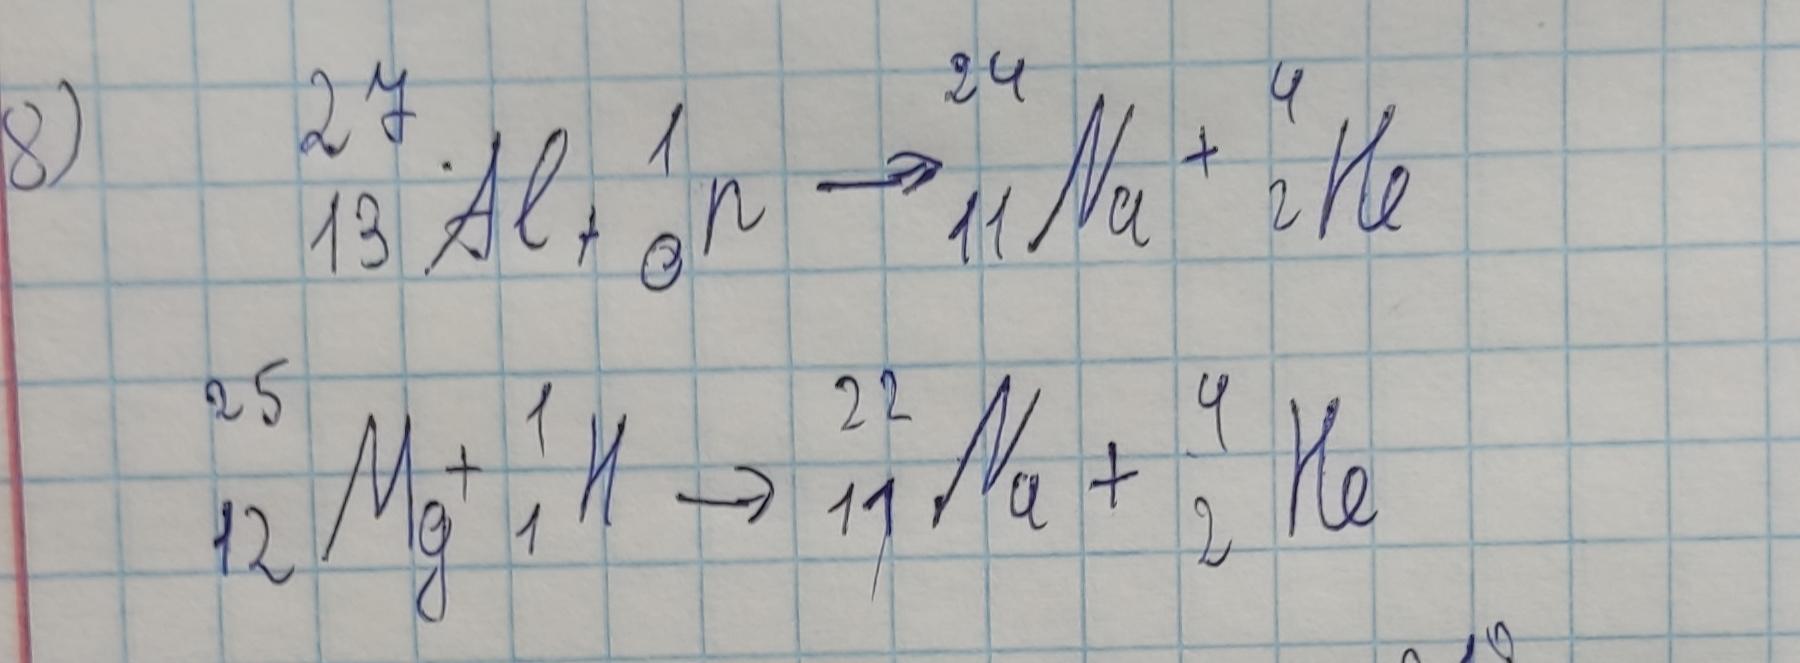 8) ²⁷₁₃Al + ¹₀n → ²⁴₁₁Na + ⁴₂He
²⁵₁₂Mg + ¹₁H → ²²₁₁Na + ⁴₂He